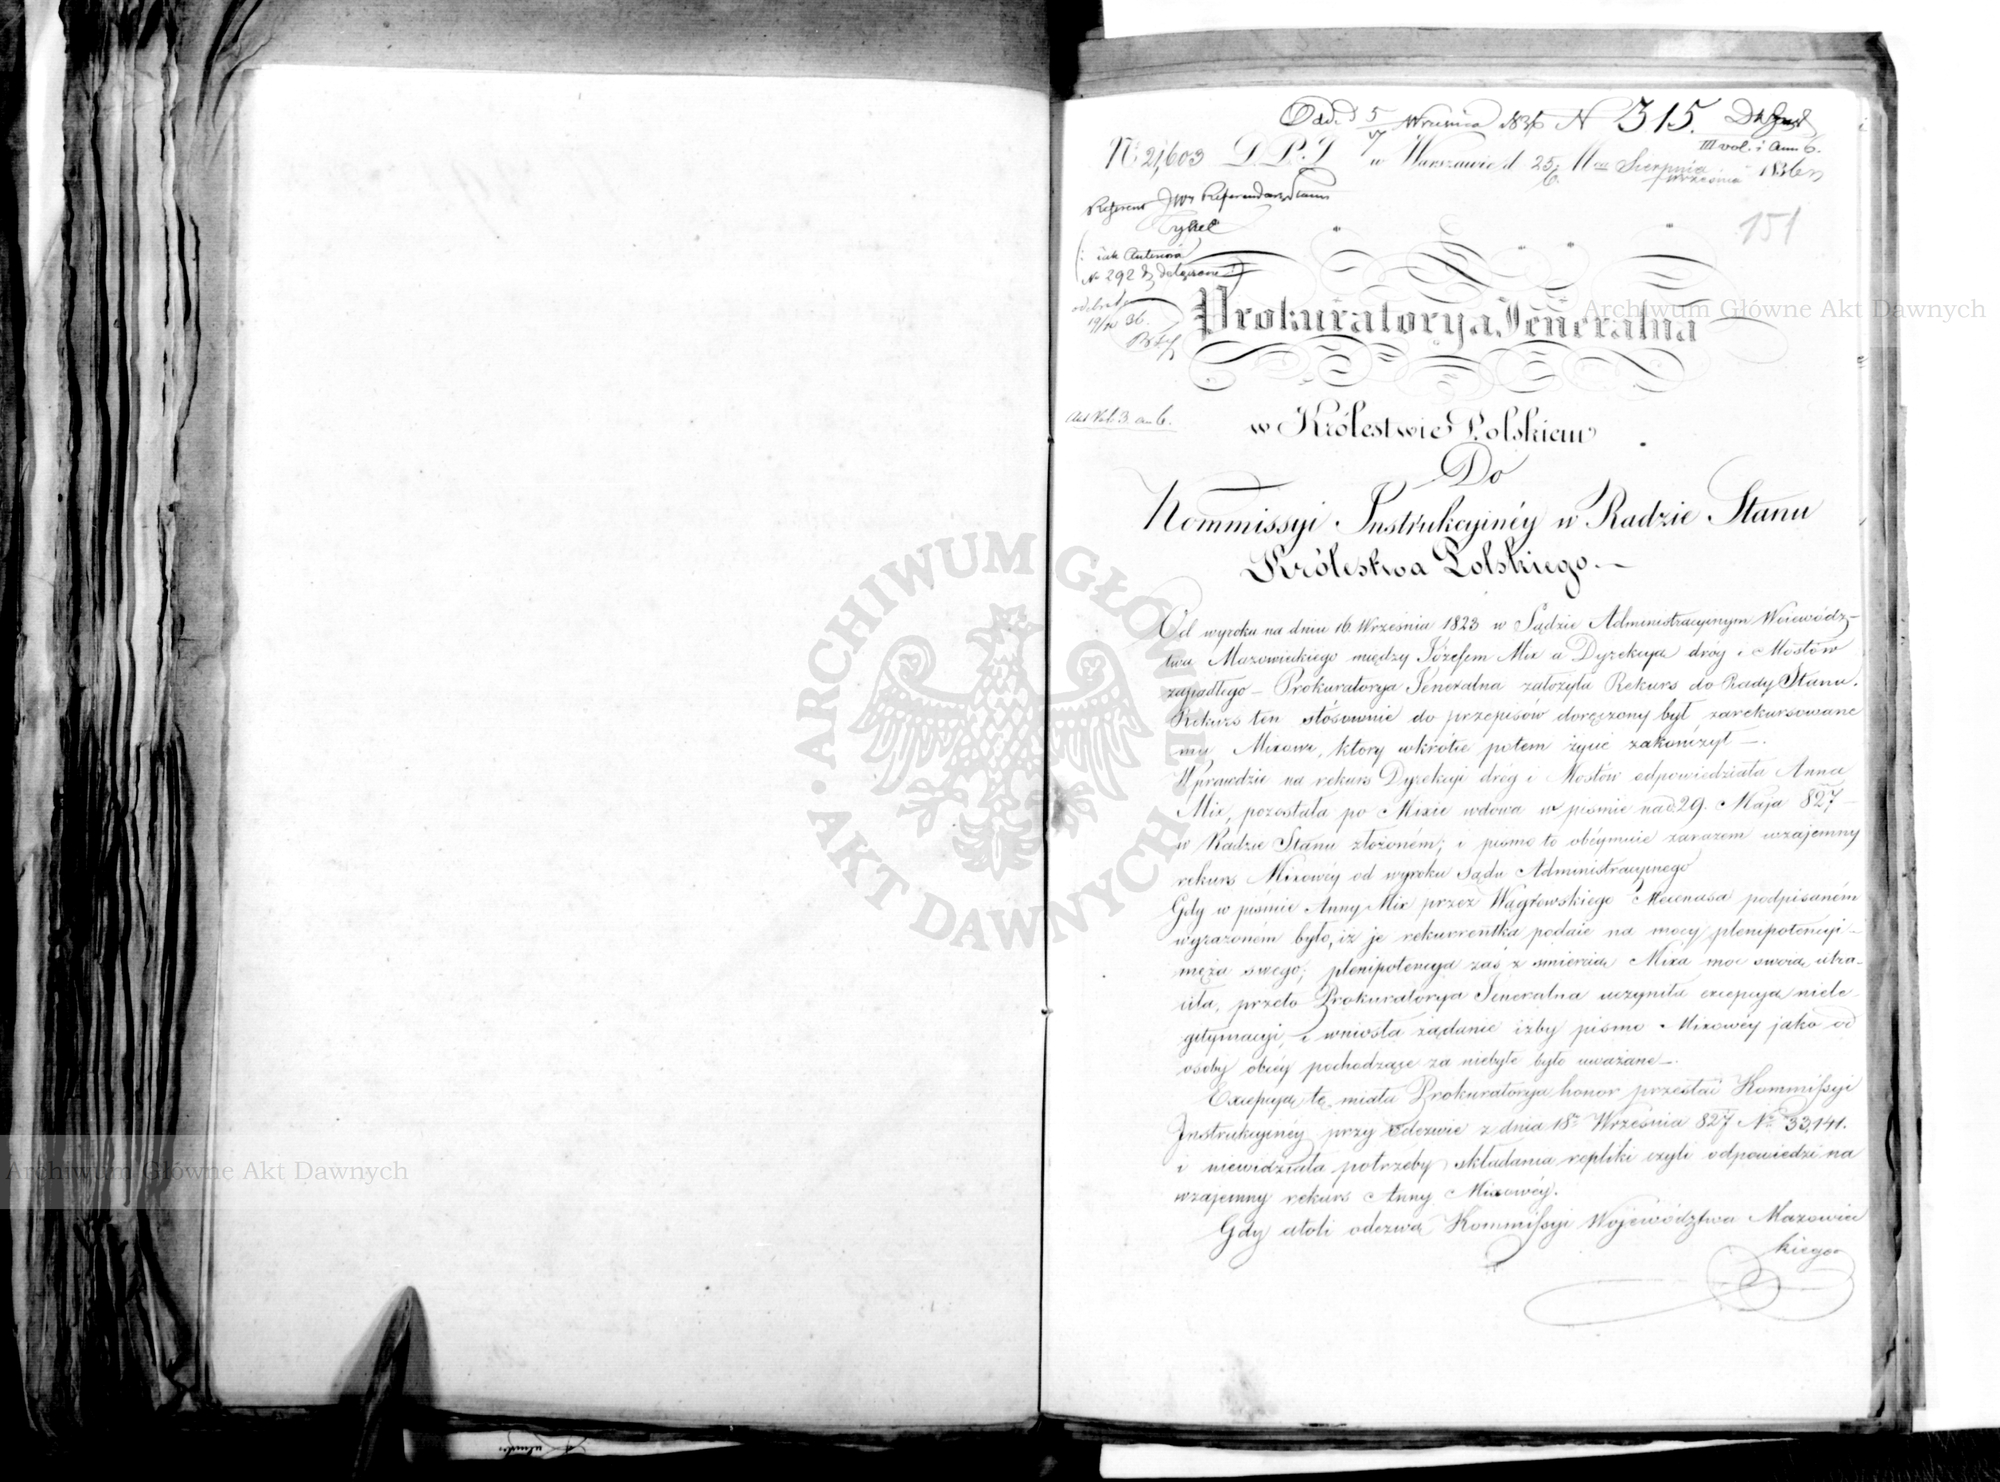 Odd. d 5/17 Września 1836 N 315.
III vol. i Ann 6.
N. 21,603 D.P.D w Warszawie d 25/6 Mca Sierpnia/Września 1836 r
Referent JW Referendarz Stanu
Tykel
151
(: iak Anteriora
No 292 dołączone :)
odebrałem
19/10 36.
Prokuratorya Jeneralna
Akt Vol. 3. an 6.
w Królestwie Polskiem
Do
Kommissyi Instrukcyinéy w Radzie Stanu
Królestwa Polskiego.—
Od wyroku na dniu 16. Września 1823 w Sądzie Administracyinym Woiewódz-
twa Mazowieckiego między Józefem Mix a Dyrekcyą dróg i Mostów
zapadłego — Prokuratorya Jeneralna założyła Rekurs do Rady Stanu.
Rekurs ten stósownie do przepisów doręczony był zarekursowane
mu Mixowi, który wkrótce potem życie zakończył —.
Wprawdzie na rekurs Dyrekcyi dróg i Mostów odpowiedziała Anna
Mix, pozostała po Mixie wdowa w piśmie nad 29. Maja 827 —
w Radzie Stanu złożoném; i pismo to obéymuie zarazem wzajemny
rekurs Mixowéy od wyroku Sądu Administracyinego
Gdy w piśmie Anny Mix przez Wągrowskiego Mecenasa podpisaném
wyrażoném było, iż je rekurrentka podaie na mocy plenipotencyi
męża swego; plenipotencya zaś z śmiercią Mixa moc swoią utra-
ciła, przeto Prokuratorya Jeneralna uczyniła excepcyą niele-
gitymacyi, i wniosła żądanie iżby pismo Mixowéy jako od
osoby obcéy pochodzące za niebyłe było uważane —.
Excepcyą tę miała Prokuratorya honor przesłać Kommissyi
Instrukcyinéy przy Odezwie z dnia 18 Września 827 No 33,141.
i niewidziała potrzeby składania repliki czyli odpowiedzi na
wzajemny rekurs Anny Mixowéy.
Gdy atoli odezwą Kommissyi Województwa Mazowiec
kiego
Archiwum Główne Akt Dawnych
Archiwum Główne Akt Dawnych
ARCHIWUM GŁÓWNE · AKT DAWNYCH ·